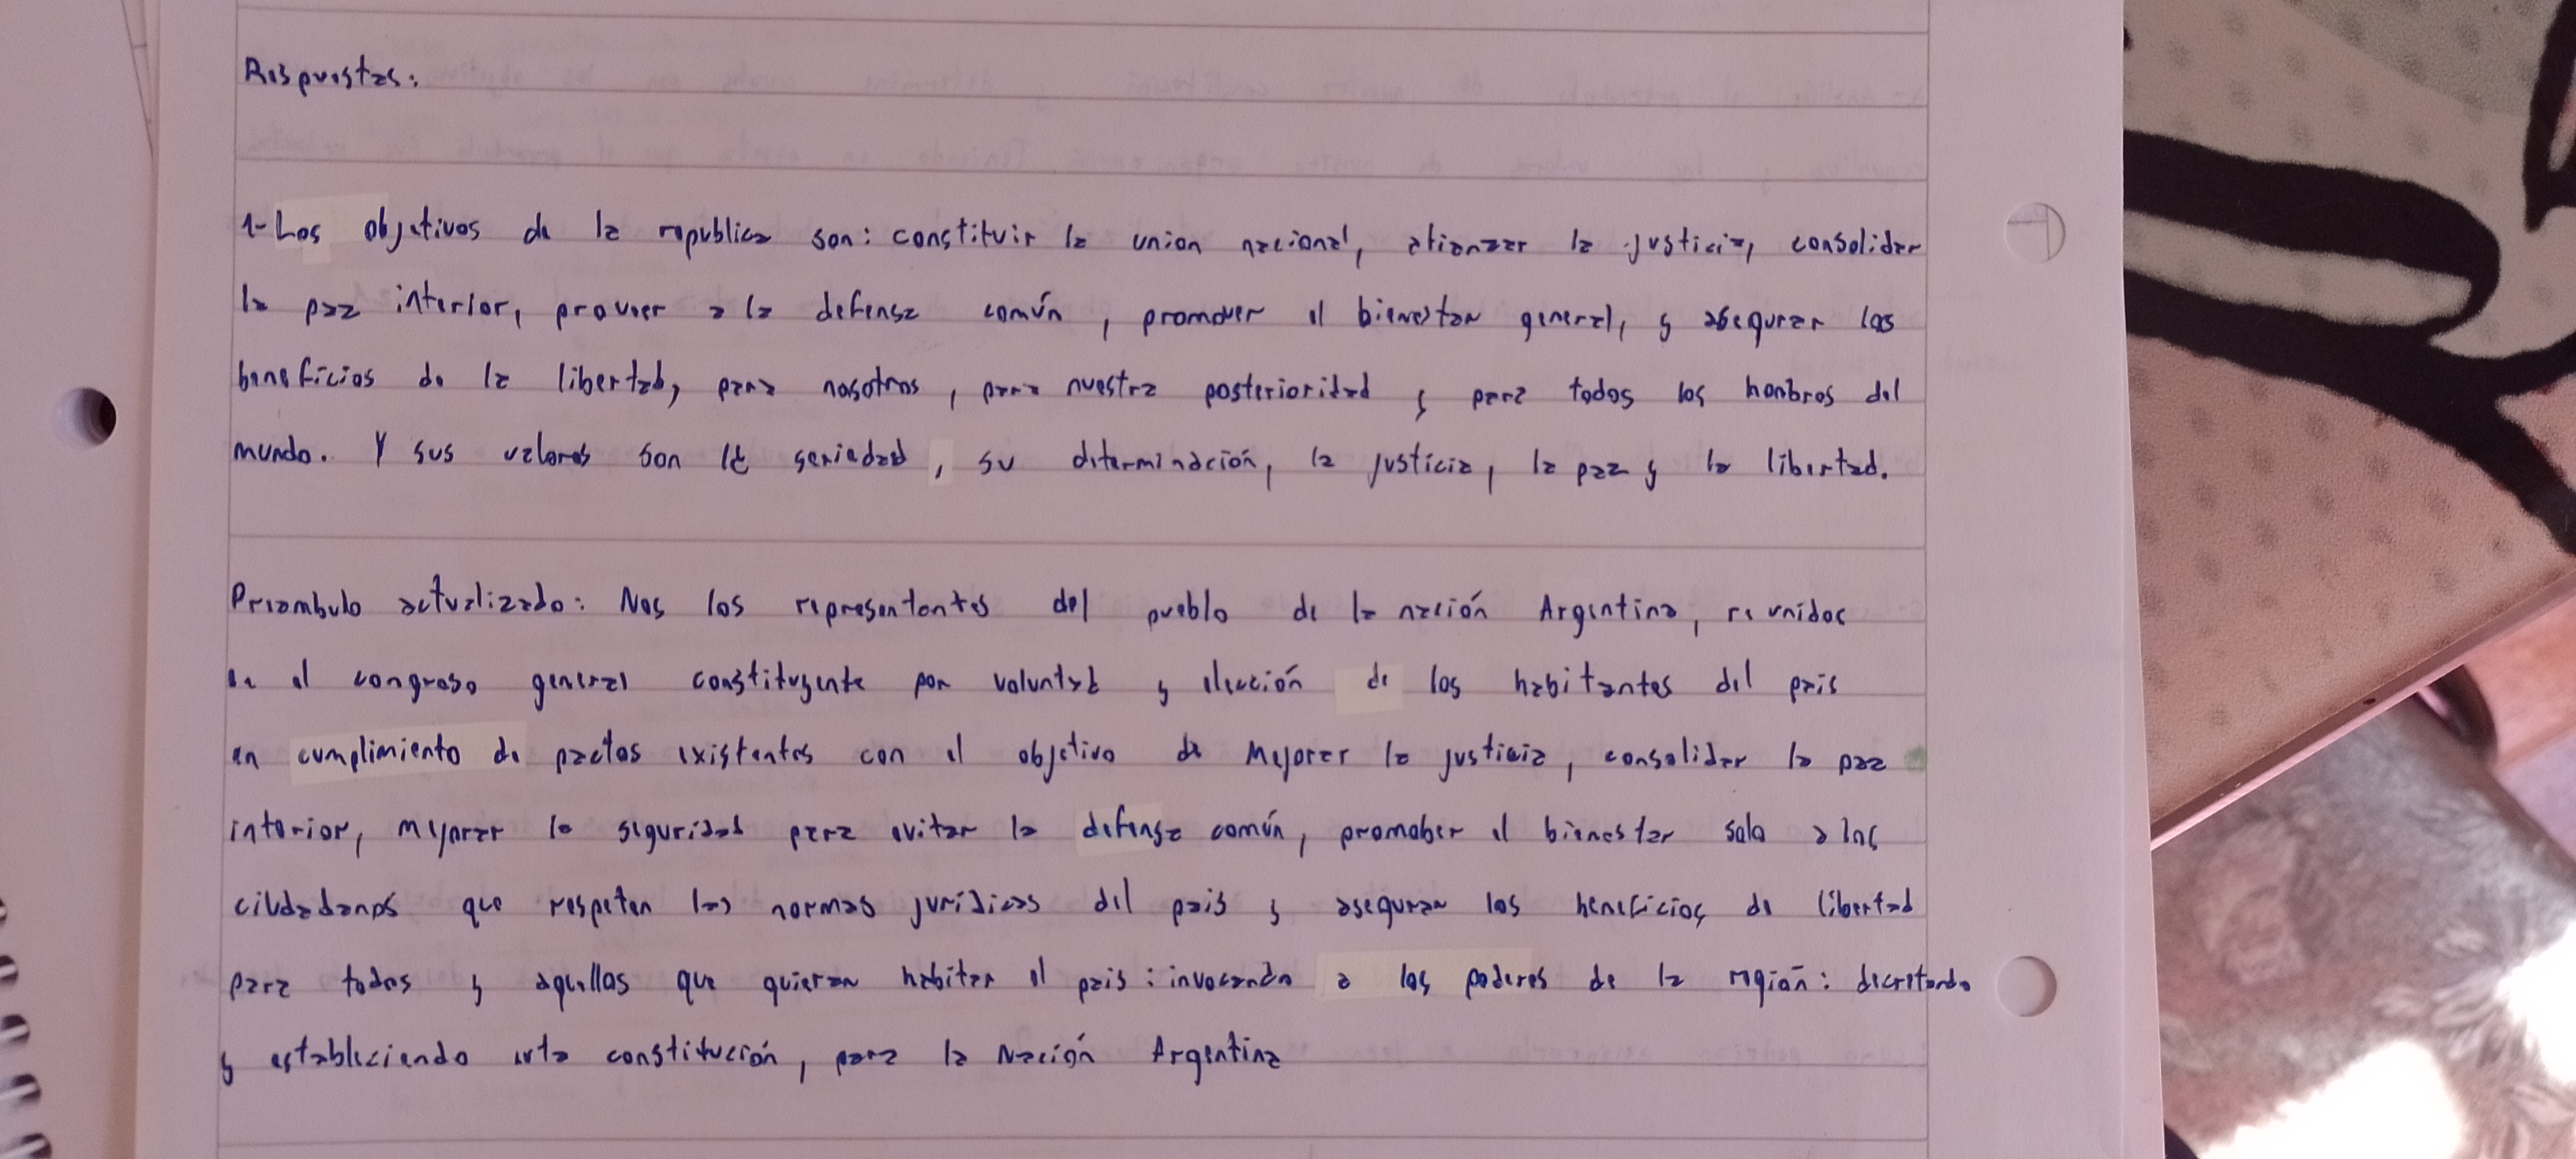 Respuestas:
1- Los objetivos de la republica son: constituir la union nacional, afianzar la justicia, consolidar
la paz interior, proveer a la defensa común, promover el bienestar general, y asegurar los
beneficios de la libertad, para nosotros, para nuestra posterioridad y para todos los hombros del
mundo. Y sus valores son la seriedad, su determinación, la justicia, la paz y la libertad.
Preambulo actualizado: Nos los representantes del pueblo de la nación Argentina, reunidos
en el congreso general constituyente por voluntad y elección de los habitantes del pais
en cumplimiento de pactos existentes con el objetivo de Mejorar la justicia, consolidar la paz
interior, mejorar la seguridad para evitar la defensa común, promober el bienestar solo a los
ciudadanos que respeten las normas jurídicas del pais y aseguran los beneficios de libertad
para todos y aquellos que quieran habitar el pais: invocando a los poderes de la región: decretando
y estableciendo esta constitución, para la Nación Argentina